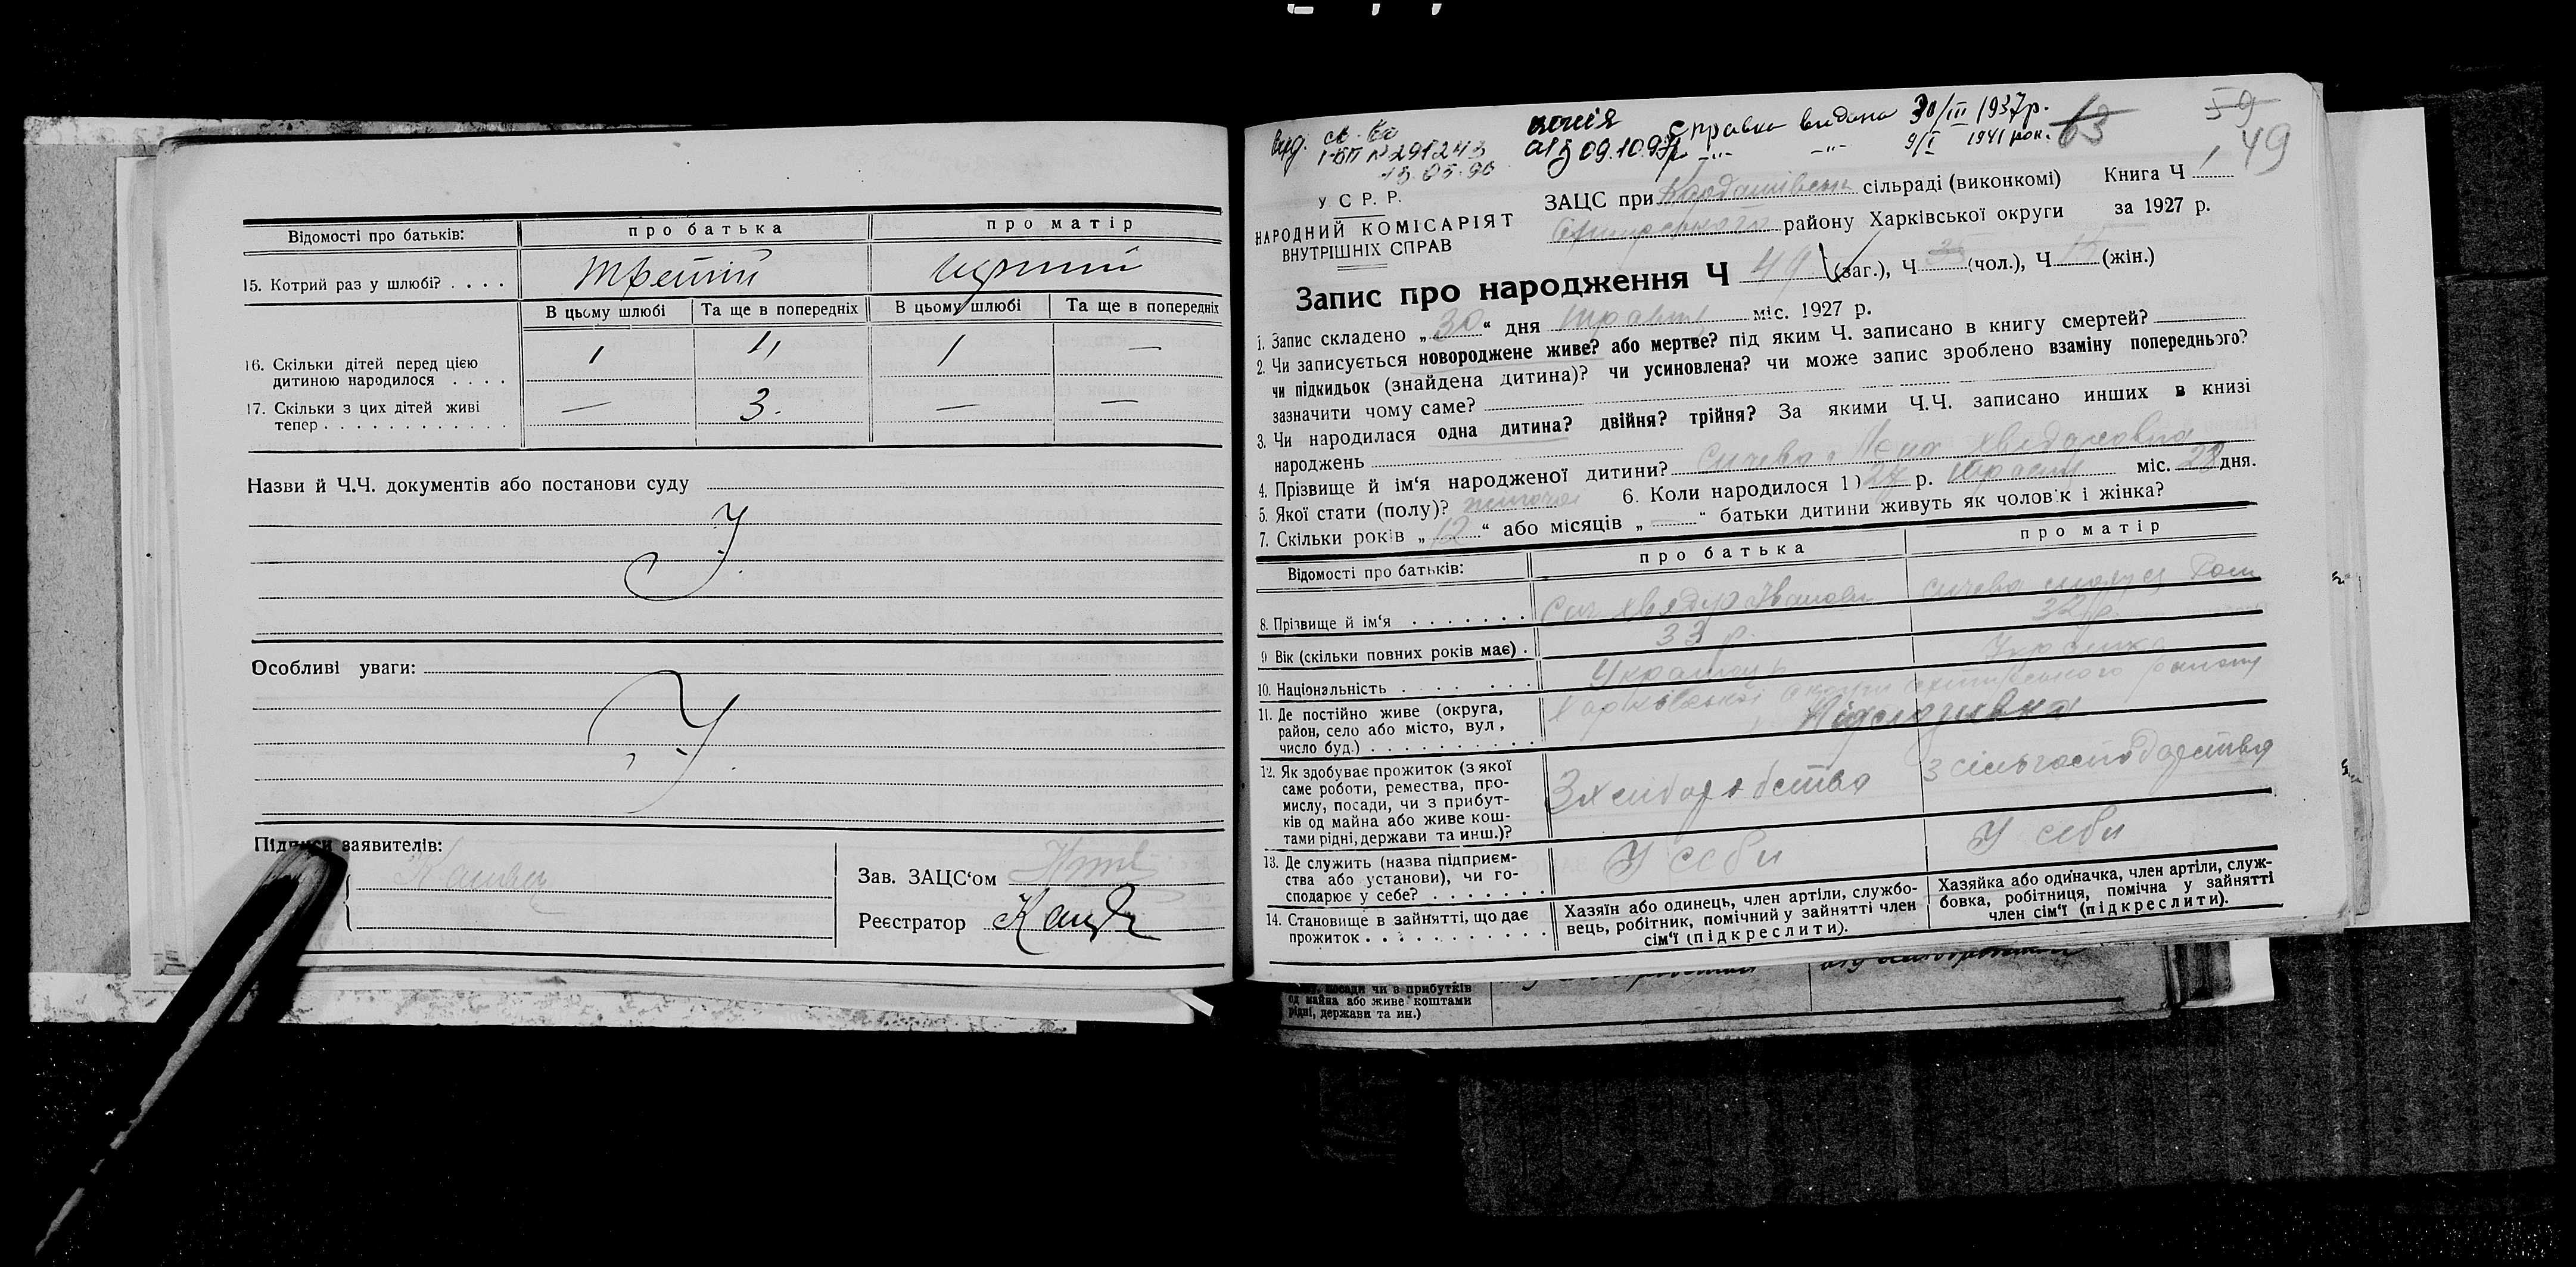 Відомості про батьків:
про батька
про матір
15. Котрий раз у шлюбі? . . . .
третій
В цьому шлюбі
Та ще в попередніх
В цьому шлюбі
Та ще в попередніх
16. Скільки дітей перед цією
дитиною народилося . . . .
1
1
—
17. Скільки з цих дітей живі
тепер . . . . . . . . . . . .
—
3.
—
—
Назви й Ч.Ч. документів або постанови суду
Особливі уваги:
Підписи заявителів:
Зав. ЗАЦС‘ом
Реєстратор
Вид. св.
№ 291243
копія
09.10.97р
Справка видана 30/III 1937р.
—"— —"— 9/I 1941 рок.
63
59
49
У С Р. Р.
НАРОДНИЙ КОМІСАРІЯТ
ВНУТРІШНІХ СПРАВ
ЗАЦС при сільраді (виконкомі) Книга Ч 1
району Харківської округи за 1927 р.
Запис про народження Ч 49 (заг.), Ч (чол.), Ч (жін.)
1. Запис складено „30“ дня травня міс. 1927 р.
2. Чи записується новороджене живе? або мертве? під яким Ч. записано в книгу смертей?
чи підкидьок (знайдена дитина)? чи усиновлена? чи може запис зроблено взаміну попереднього?
зазначити чому саме?
3. Чи народилася одна дитина? двійня? трійня? За якими Ч.Ч. записано инших в книзі
народжень
4. Прізвище й ім‘я народженої дитини? Сичева
5. Якої стати (полу)? жіночої 6. Коли народилося 1) 27 р. травня міс. 28 дня.
7. Скільки років „12“ або місяців „—“ батьки дитини живуть як чоловік і жінка?
Відомості про батьків:
про батька
про матір
8. Прізвище й ім‘я . . . . . . .
Сич Хведір Іванович
Сичева
9. Вік (скільки повних років має) .
33 р.
32 р.
10. Національність . . . . . . . .
Українець
Українка
11. Де постійно живе (округа,
район, село або місто, вул,
число буд.) . . . . . . . . . .
Харківської округи Охтирського району
12. Як здобуває прожиток (з якої
саме роботи, ремества, про-
мислу, посади, чи з прибут-
ків од майна або живе кош-
тами рідні, держави та инш.)?
З хліборобства
З сільгосподарства
13. Де служить (назва підприєм-
ства або установи), чи го-
сподарює у себе? . . . . . .
У себи
У себи
14. Становище в зайнятті, що дає
прожиток . . . . . . . . . . .
Хазяїн або одинець, член артіли, службо-
вець, робітник, помічний у зайнятті член
сім‘ї (підкреслити).
Хазяйка або одиначка, член артіли, служ-
бовка, робітниця, помічна у зайнятті
член сім‘ї (підкреслити).
посади чи в прибутків
од майна або живе коштами
рідні, держави та ин.)